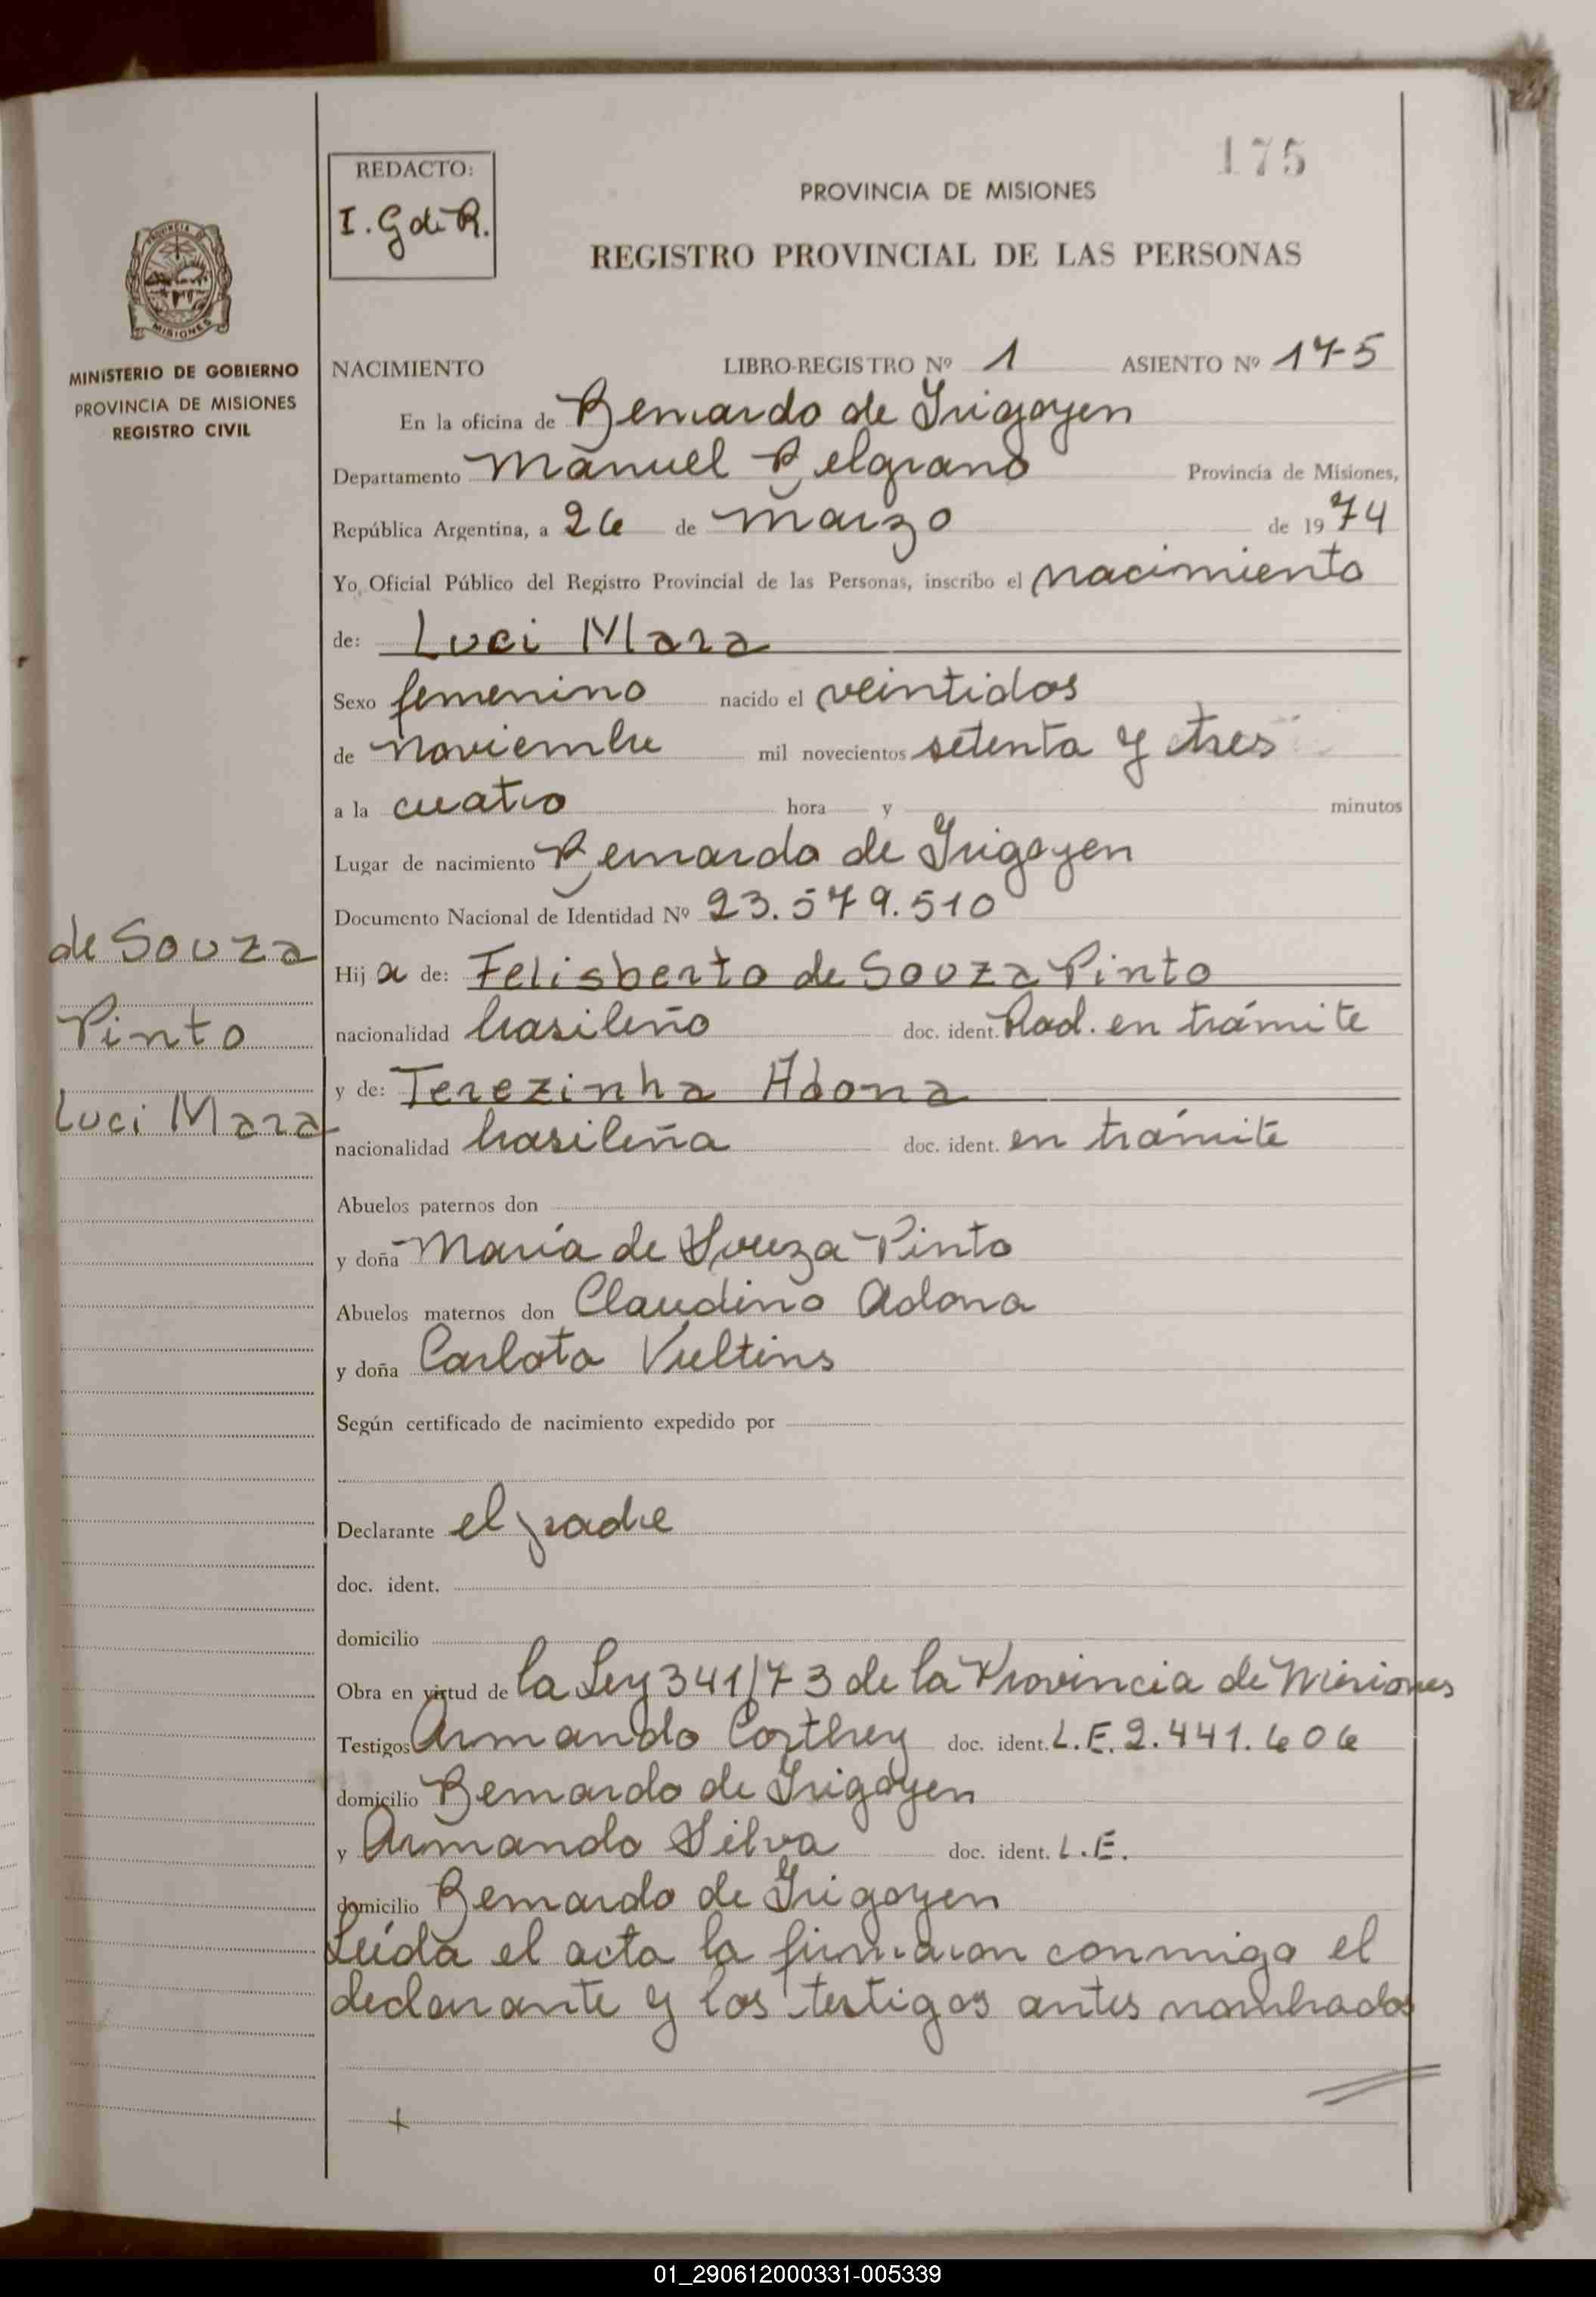 175
REDACTO:
I. G de R.
PROVINCIA DE MISIONES
REGISTRO PROVINCIAL DE LAS PERSONAS
PROVINCIA DE
MISIONES
MINISTERIO DE GOBIERNO
PROVINCIA DE MISIONES
REGISTRO CIVIL
NACIMIENTO LIBRO-REGISTRO Nº 1 ASIENTO Nº 175
En la oficina de Bernardo de Irigoyen
Departamento Manuel Belgrano Provincia de Misiones,
República Argentina, a 26 de marzo de 1974
Yo, Oficial Público del Registro Provincial de las Personas, inscribo el nacimiento
de: Luci Mara
Sexo femenino nacido el veintidos
de noviembre mil novecientos setenta y tres
a la cuatro hora y minutos
Lugar de nacimiento Bernardo de Irigoyen
Documento Nacional de Identidad Nº 23.579.510
de Souza
Pinto
Luci Mara
Hija de: Felisberto de Souza Pinto
nacionalidad brasileño doc. ident. Rad. en trámite
y de: Terezinha Adona
nacionalidad brasileña doc. ident. en trámite
Abuelos paternos don
y doña María de Souza Pinto
Abuelos maternos don Claudino Adona
y doña Carlota Vultins
Según certificado de nacimiento expedido por
Declarante el padre
doc. ident.
domicilio
Obra en virtud de la Ley 341/73 de la Provincia de Misiones
Testigos Armando Corthey doc. ident. L.E. 2.441.606
domicilio Bernardo de Irigoyen
y Armando Silva doc. ident. L.E.
domicilio Bernardo de Irigoyen
Leída el acta la firmaron conmigo el
declarante y los testigos antes nombrados
01_290612000331-005339